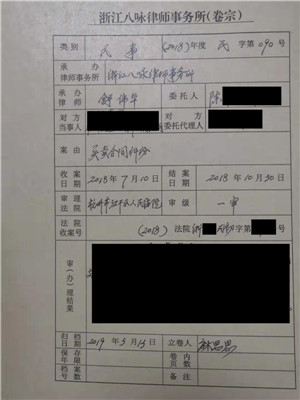 浙江八咏律师事务所(卷宗)
类别 民事 (2018)年度 民 字第 090 号
承办律师事务所 浙江八咏律师事务所
承办律师 舒伟华 委托人 陈
对方当事人 对方委托代理人
案由 买卖合同纠纷
收案日期 2018年7月10日 结案日期 2018年10月30日
审理法院 杭州市江干区人民法院 审级 一审
法院收案号 (2018) 法院 浙 字第 号
审(办)理结果
归档日期 2019年3月15日 立卷人 林思思
保存年限 卷内页数
档案号数 备注